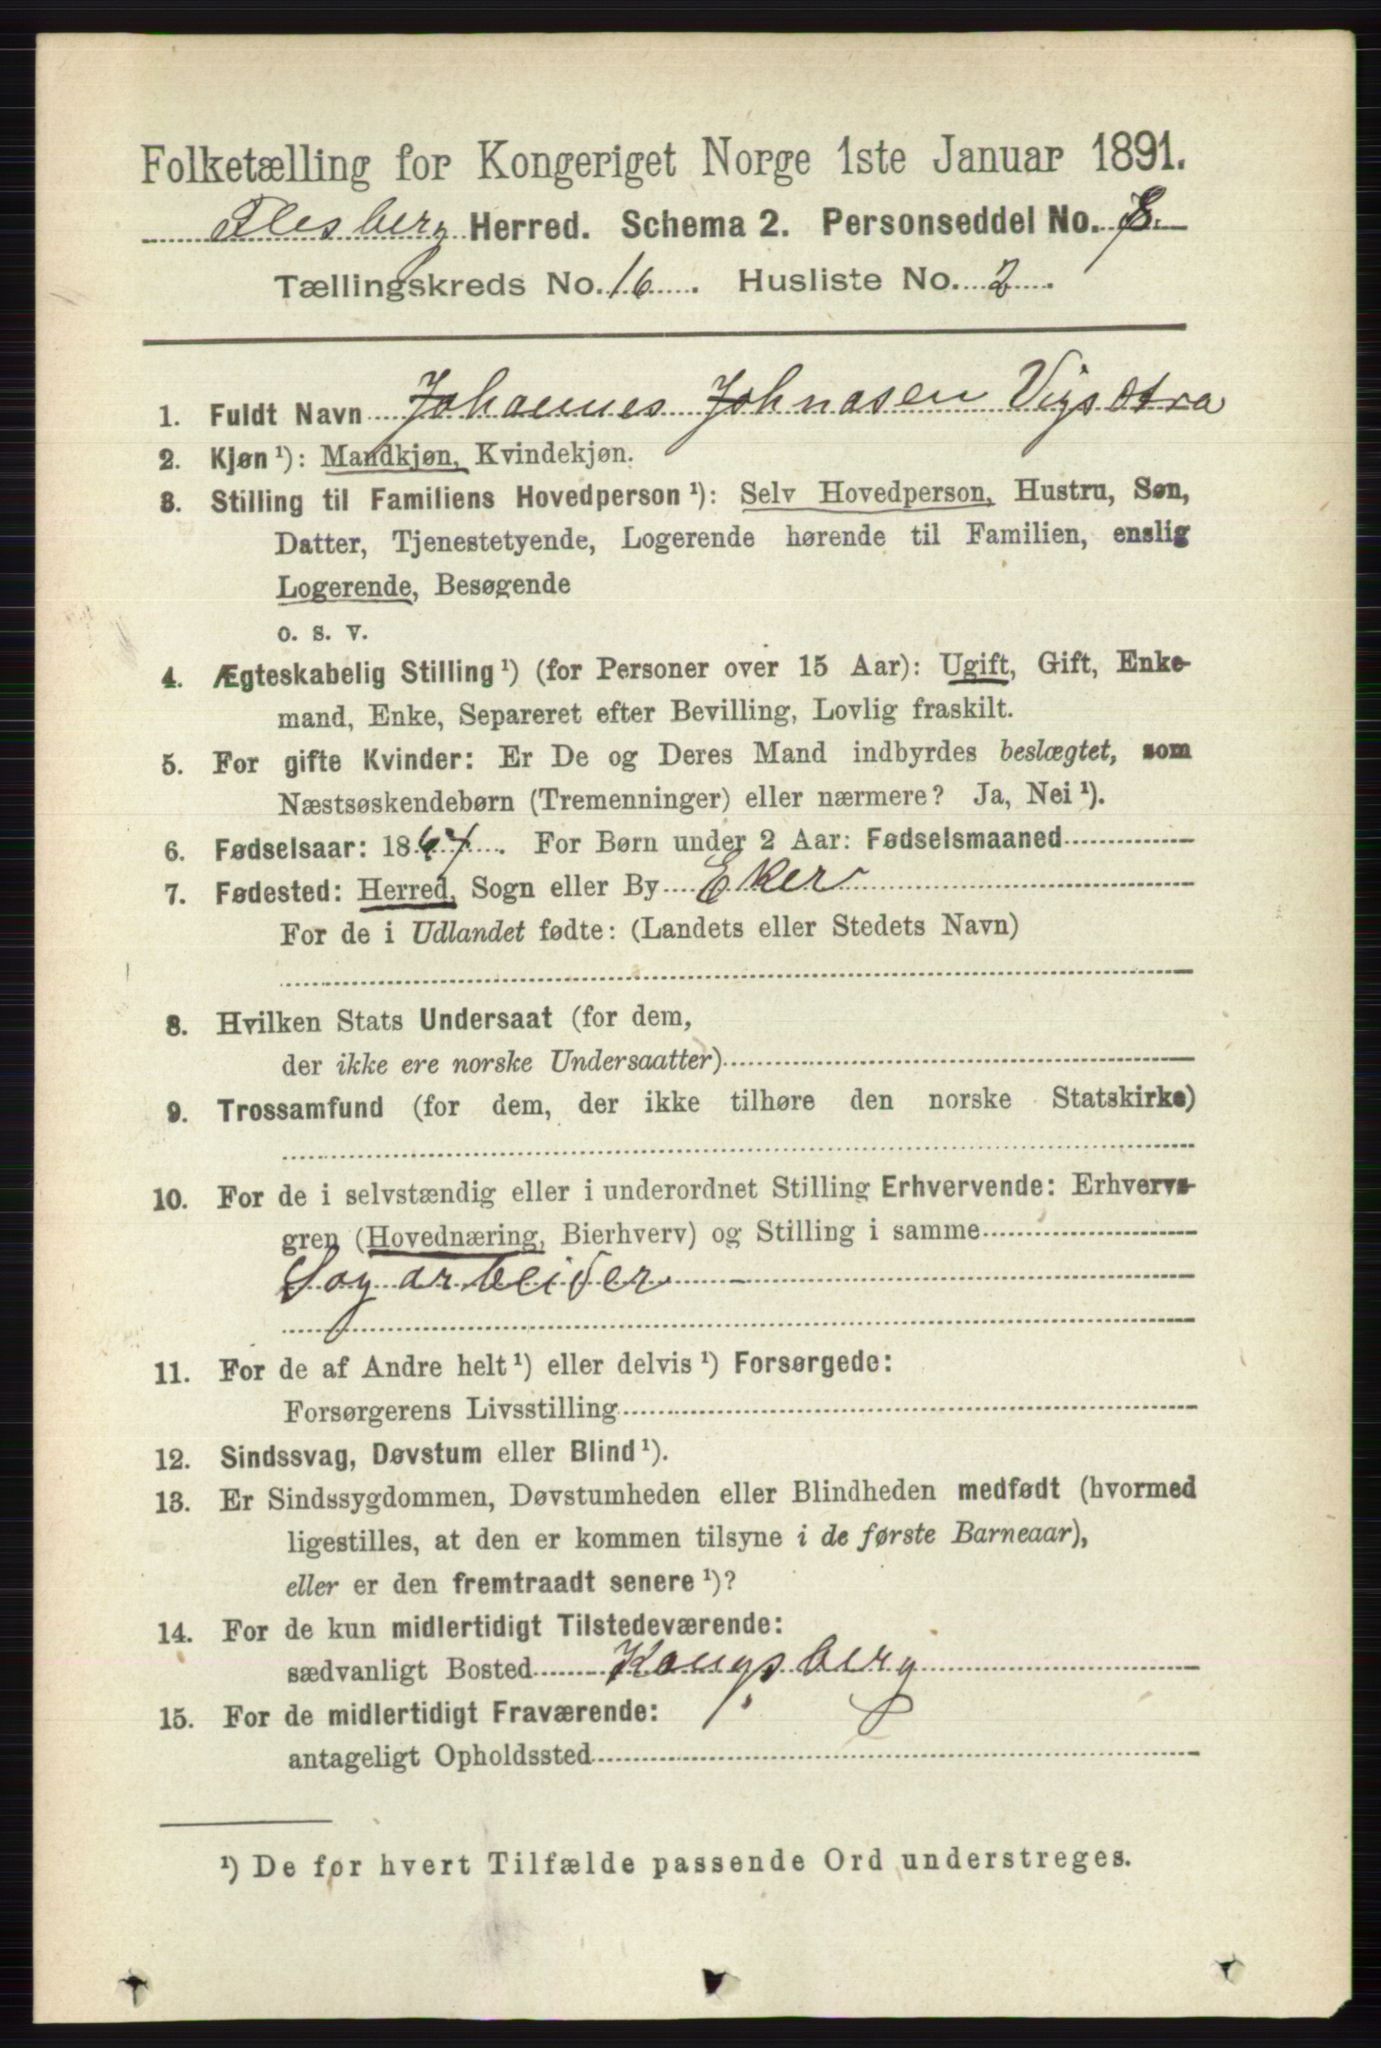 Folketælling for Kongeriget Norge 1ste Januar 1891.
Flesberg Herred. Schema 2. Personseddel No. 8.
Tællingskreds No. 16. Husliste No. 2.
1. Fuldt Navn Johannes Johnasen Vigsstra
2. Kjøn¹): Mandkjøn, Kvindekjøn.
3. Stilling til Familiens Hovedperson¹): Selv Hovedperson, Hustru, Søn,
Datter, Tjenestetyende, Logerende hørende til Familien, enslig
Logerende, Besøgende
o. s. v.
4. Ægteskabelig Stilling¹) (for Personer over 15 Aar): Ugift, Gift, Enke-
mand, Enke, Separeret efter Bevilling, Lovlig fraskilt.
5. For gifte Kvinder: Er De og Deres Mand indbyrdes beslægtet, som
Næstsøskendebørn (Tremenninger) eller nærmere? Ja, Nei¹).
6. Fødselsaar: 1867. For Børn under 2 Aar: Fødselsmaaned
7. Fødested: Herred, Sogn eller By Eker
For de i Udlandet fødte: (Landets eller Stedets Navn)
8. Hvilken Stats Undersaat (for dem,
der ikke ere norske Undersaatter)
9. Trossamfund (for dem, der ikke tilhøre den norske Statskirke)
10. For de i selvstændig eller i underordnet Stilling Erhvervende: Erhvervs-
gren (Hovednæring, Bierhverv) og Stilling i samme
Sagarbeider
11. For de af Andre helt¹) eller delvis¹) Forsørgede:
Forsørgerens Livsstilling
12. Sindssvag, Døvstum eller Blind¹).
13. Er Sindssygdommen, Døvstumheden eller Blindheden medfødt (hvormed
ligestilles, at den er kommen tilsyne i de første Barneaar),
eller er den fremtraadt senere¹)?
14. For de kun midlertidigt Tilstedeværende:
sædvanligt Bosted Kongsberg
15. For de midlertidigt Fraværende:
antageligt Opholdssted
¹) De for hvert Tilfælde passende Ord understreges.